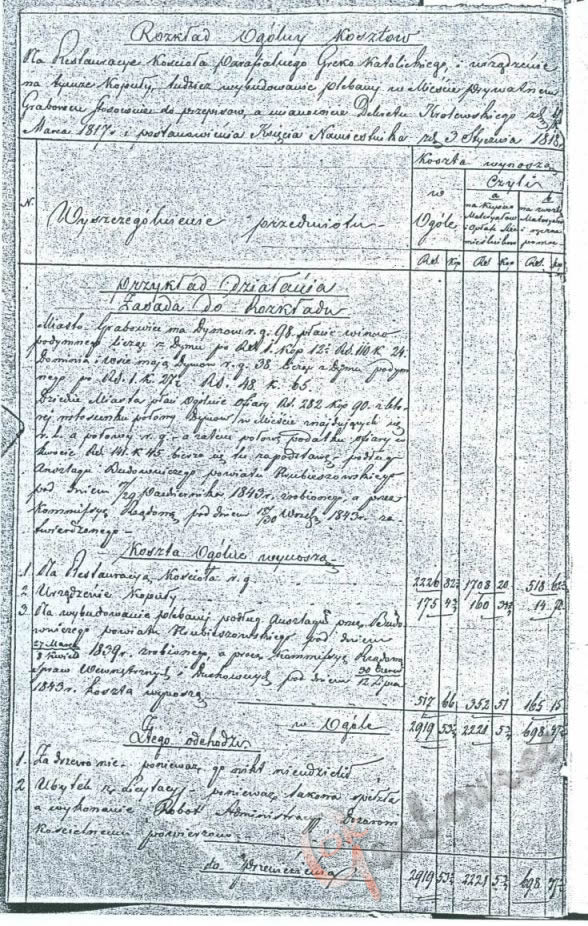 Rozkład Ogólny Kosztów
Na Restauracye Kościoła Parafialnego Greko Katolickiego, i urządzenie
na tymże Kopuły, tudzież wybudowanie plebany w Mieście Prywatnem
Grabowcu stosownie do przepisów, a mianowicie Dekretu Królewskiego z d.
Marca 1817 r. i postanowienia Księcia Namiestnika z d. 3 Stycznia 1818 r.
Koszta wynoszą
w Ogóle
Czyli
a
na kupno Materyałów i opłatę Rzemieślników
b
N.
Wyszczególnienie przedmiotu
Rs. Kop Rs. Kop Rs. Kop
Przykład Działania
Zasada do Rozkładu
Miasto Grabowiec ma Dymów n.g. 98. płaci winno
podymnego licząc z Dymu po Rs. 1. Kop 12½ Rs. 110 K. 24.
Dominia i Wsie mają Dymów n.g. 38. licząc z Dymu podym
nego po Rs. 1. K. 27½ Rs. 48 K. 65.
Dziedzic Miasta płaci ofiary Rs. 282 Kop 90.
w stosunku połowy Dymów w Mieście znajdujących się
a zatem połowę podatku ofiary w
kwocie Rs. 141 K 45 bierze się tu za podstawę podług
Anszlagu Budowniczego powiatu Hrubieszowskiego
pod dniem 17/29 Października 1843 r. zrobionego, a przez
Kommissyę Rządową pod dniem 18/30 1843 r. za-
twierdzonego
Koszta Ogólne wynoszą
1 Na Restauracyą Kościoła n.g. 2226 82½ 1708 20 518 62½
2 Urządzenie Kopuły 175 4½ 160 34½ 14
3 Na wybudowanie plebanij podług Anszlagu przez Budo
wniczego powiatu Hrubieszowskiego pod dniem
27 Marca / 8 Kwiet 1839 r. zrobionego a przez Kommissyę Rządową
Spraw Wewnętrznych i Duchownych pod dniem 30 Czerw / 12 Lipca
1843 r. Koszta wynoszą 517 66 352 51 165 15
w Ogóle 2919 53½ 2221 5½ 698
Z tego odchodzi
1. Za drzewo nic, ponieważ go nikt nieudzielił
2 Ubytek z Licytacyi, ponieważ takowa spełzła
a wykonanie Robot Administracyj Dozorom
Kościelnemu powierzono
do Przeniesienia 2919 53½ 2221 5½ 698
Grabowiec